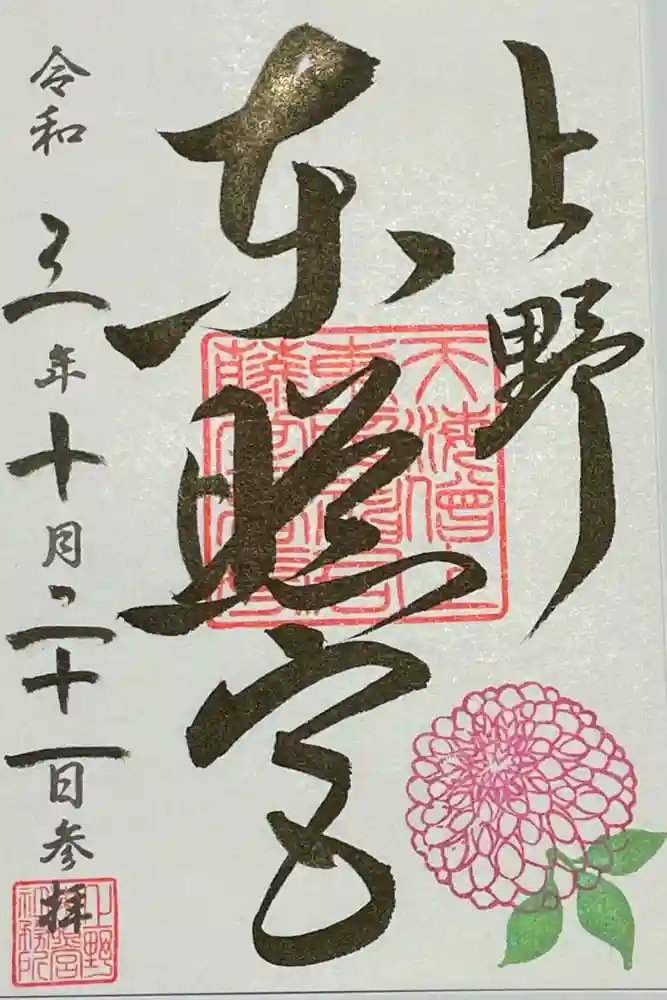 上野
東照宮
令和三年十月二十一日参拝
天海僧正
藤堂高虎
上野
東照宮
社務所